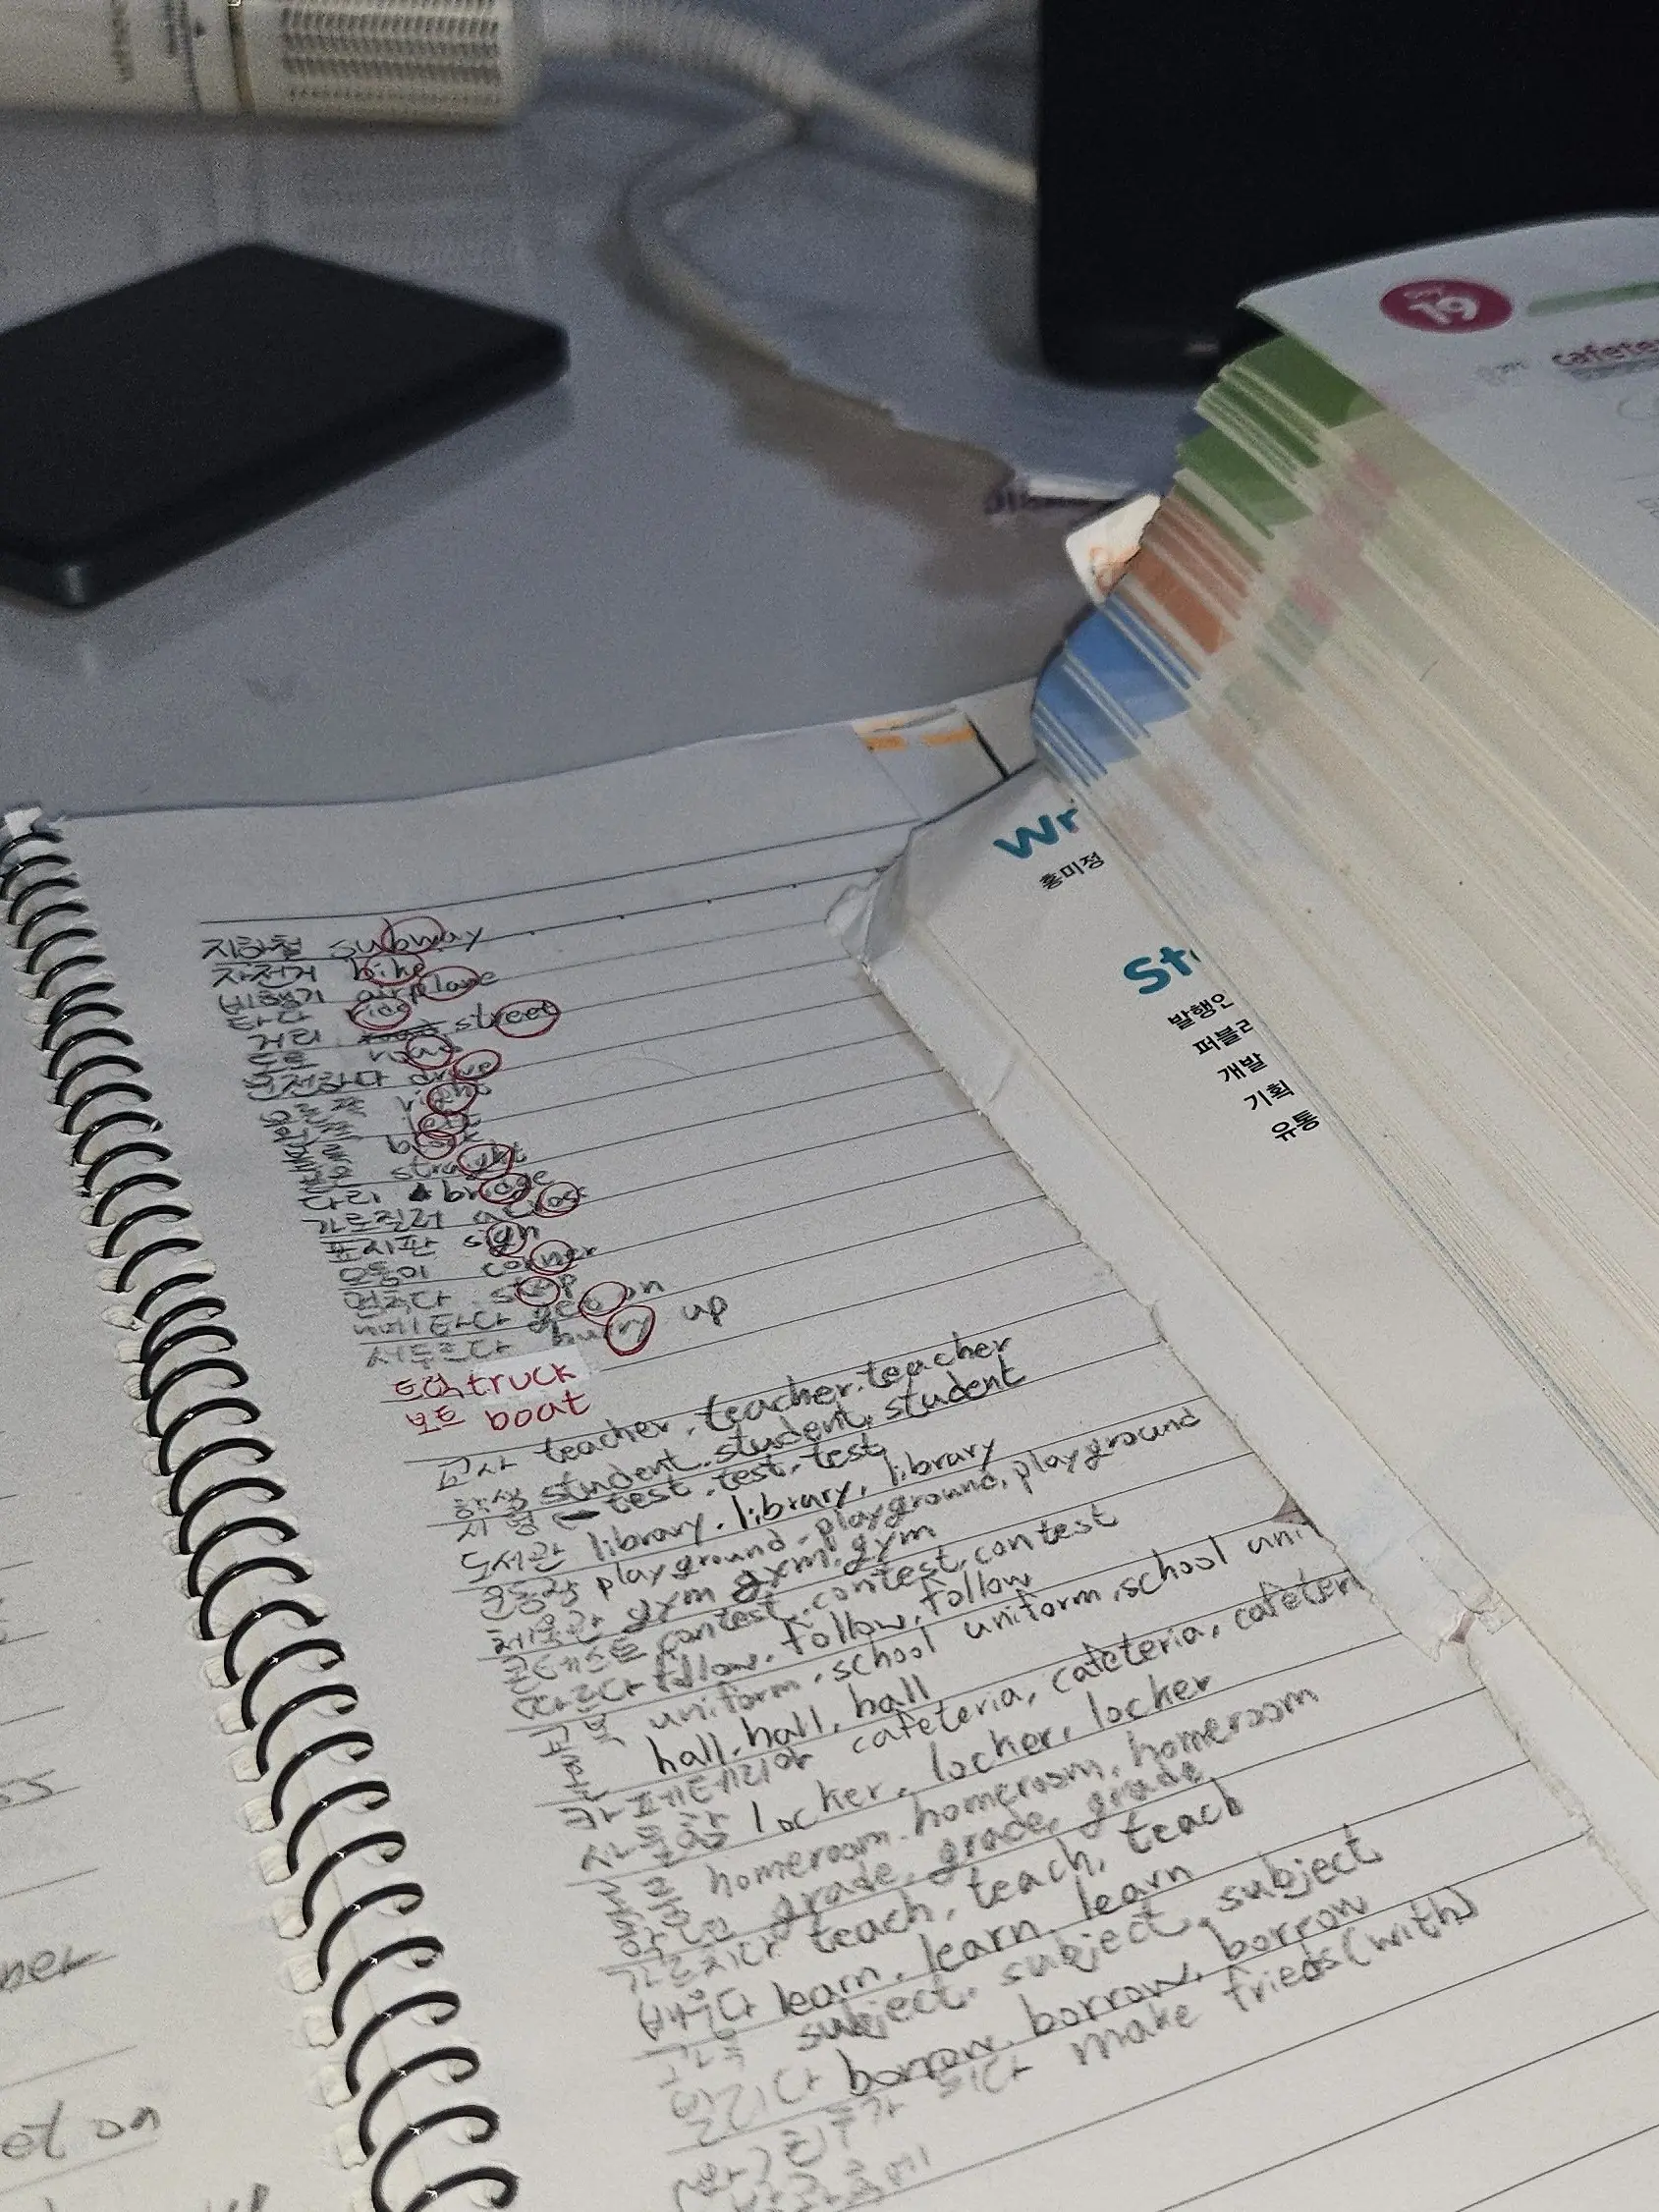 지하철 subway
자전거 bike
비행기 airplane
타다 ride
거리 street
도로 road
운전하다 drive
right
left
block
straight
다리 bridge
가로질러 across
표지판 sign
모퉁이 corner
멈추다 stop
get on
서두르다 hurry up
트럭 truck
보트 boat
교사 teacher, teacher, teacher
학생 student, student, student
시험 test, test, test
도서관 library, library, library
운동장 playground, playground, playground
체육관 gym gym, gym
콘테스트 contest, contest, contest
따르다 follow, follow, follow
교복 uniform, school uniform, school uni
hall, hall, hall
카페테리아 cafeteria, cafeteria, cafeteri
사물함 locker, locker, locker
homeroom, homeroom, homeroom
학년 grade, grade, grade
가르치다 teach, teach, teach
배우다 learn, learn, learn
과목 subject, subject, subject
빌리다 borrow, borrow, borrow
(와) 친구가 되다 make frieds (with)
et on
Wr
홍미정
St
발행인
퍼블리
개발
기획
유통
19
cafete